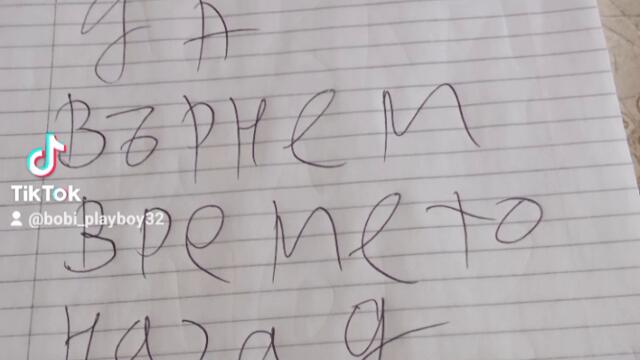 да
Върнем
Времето
назад
TikTok
@bobi_playboy32